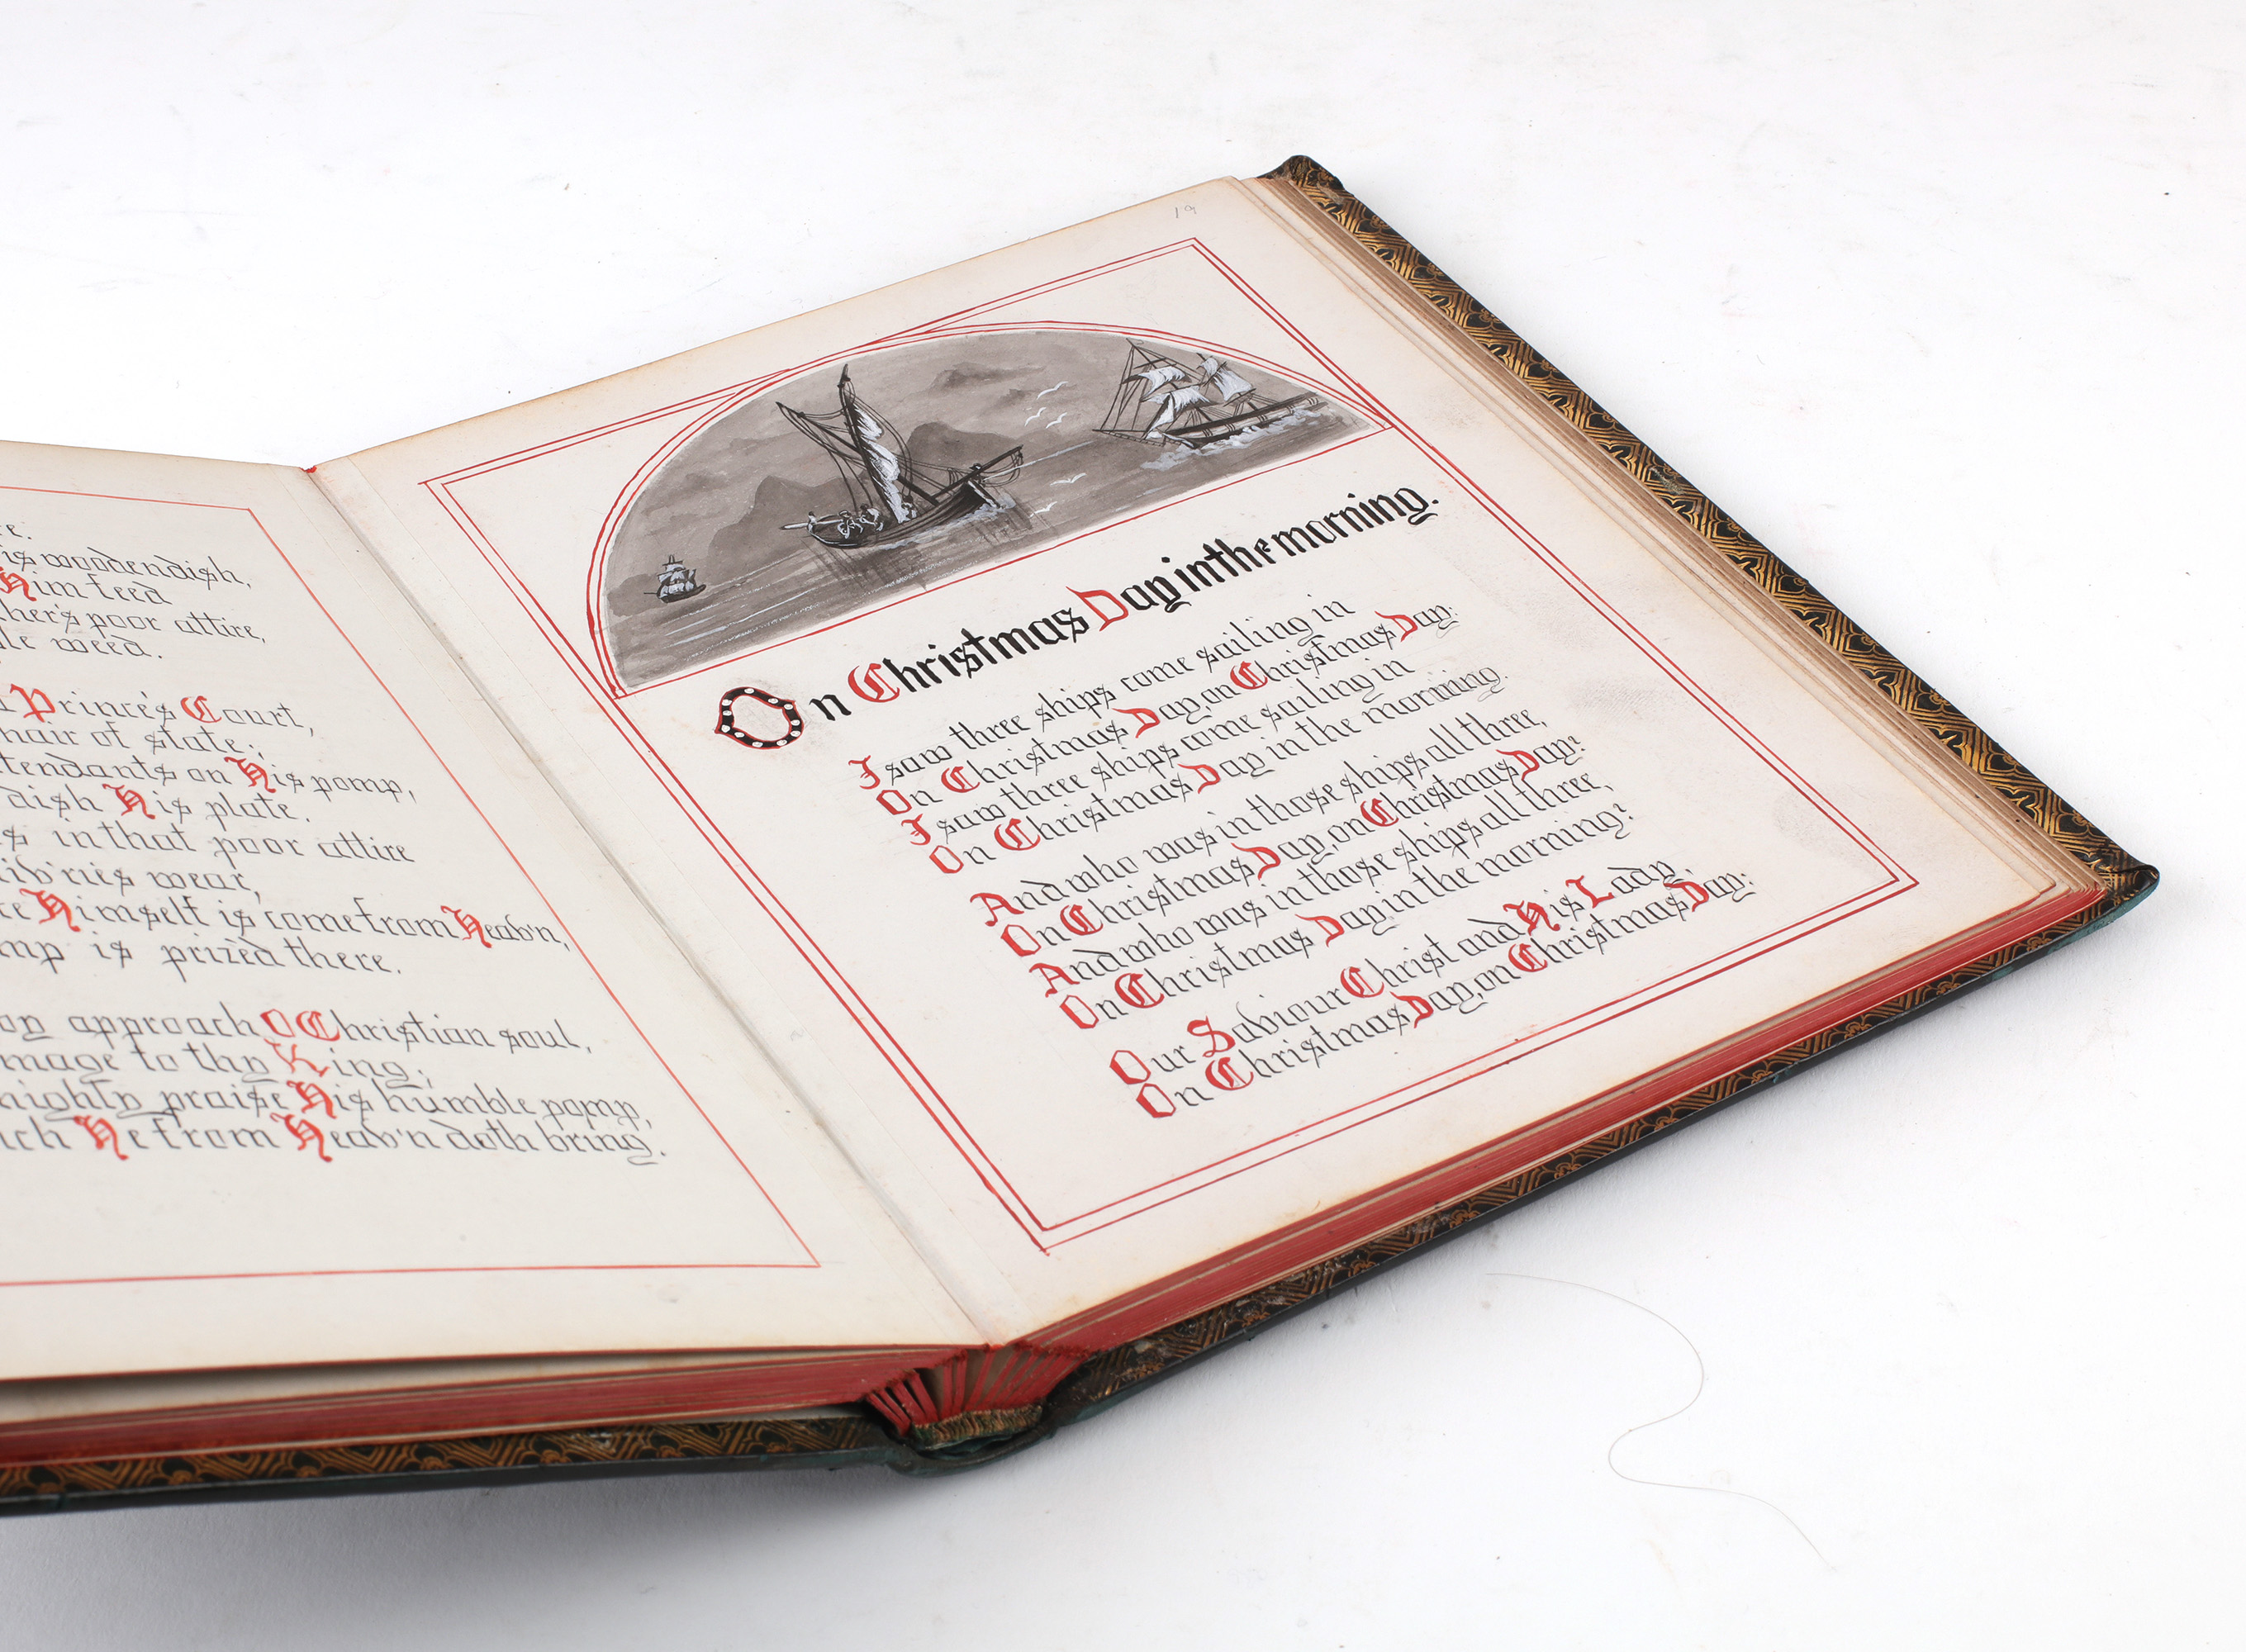 is wooden dish,
Him feed
poor attire,
weed.
Prince's Court,
of state;
on His pomp,
dish His plate.
in that poor attire
wear,
Himself is come from Heav'n,
is prized there.
approach O Christian soul,
to thy King;
highly praise His humble pomp,
He from Heav'n doth bring.
19
On Christmas Day in the morning.
I saw three ships come sailing in
On Christmas Day, on Christmas Day:
I saw three ships come sailing in
On Christmas Day in the morning.
And who was in those ships all three,
On Christmas Day, on Christmas Day?
And who was in those ships all three,
On Christmas Day in the morning?
Our Saviour Christ and His Lady,
On Christmas Day, on Christmas Day: